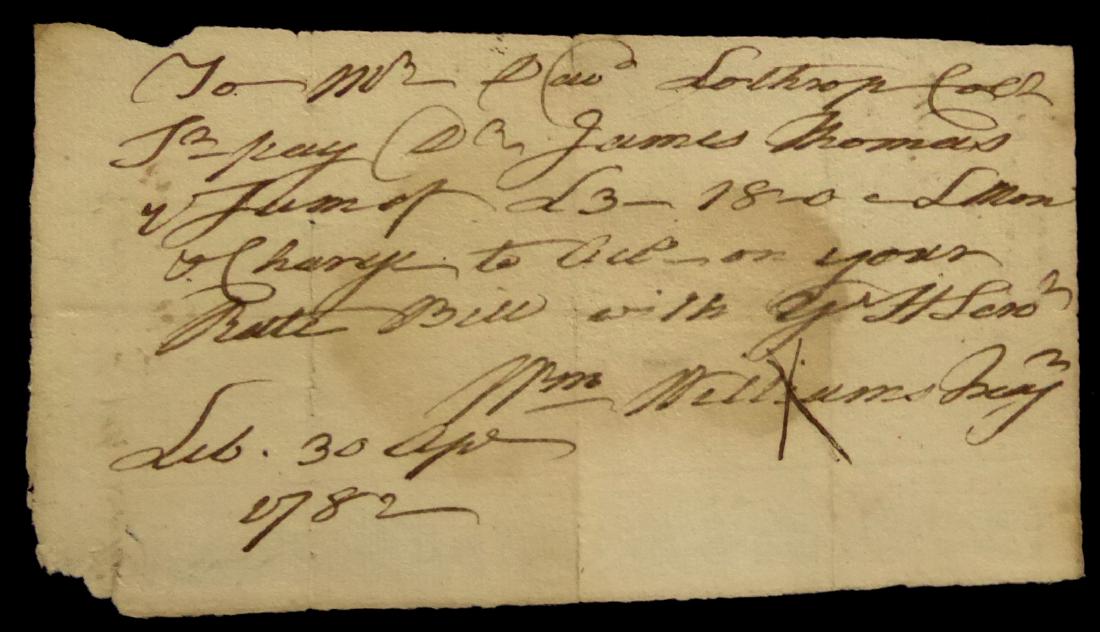 To Mr Davd Lothrop Colr
Sr pay Dn James Thomas
ye Sum of £3-18-0 - L Mon
& Charge to Acct on your
Rate Bill with Yr H Servt
Wm Williams Treasr
Leb. 30 Apl
1782